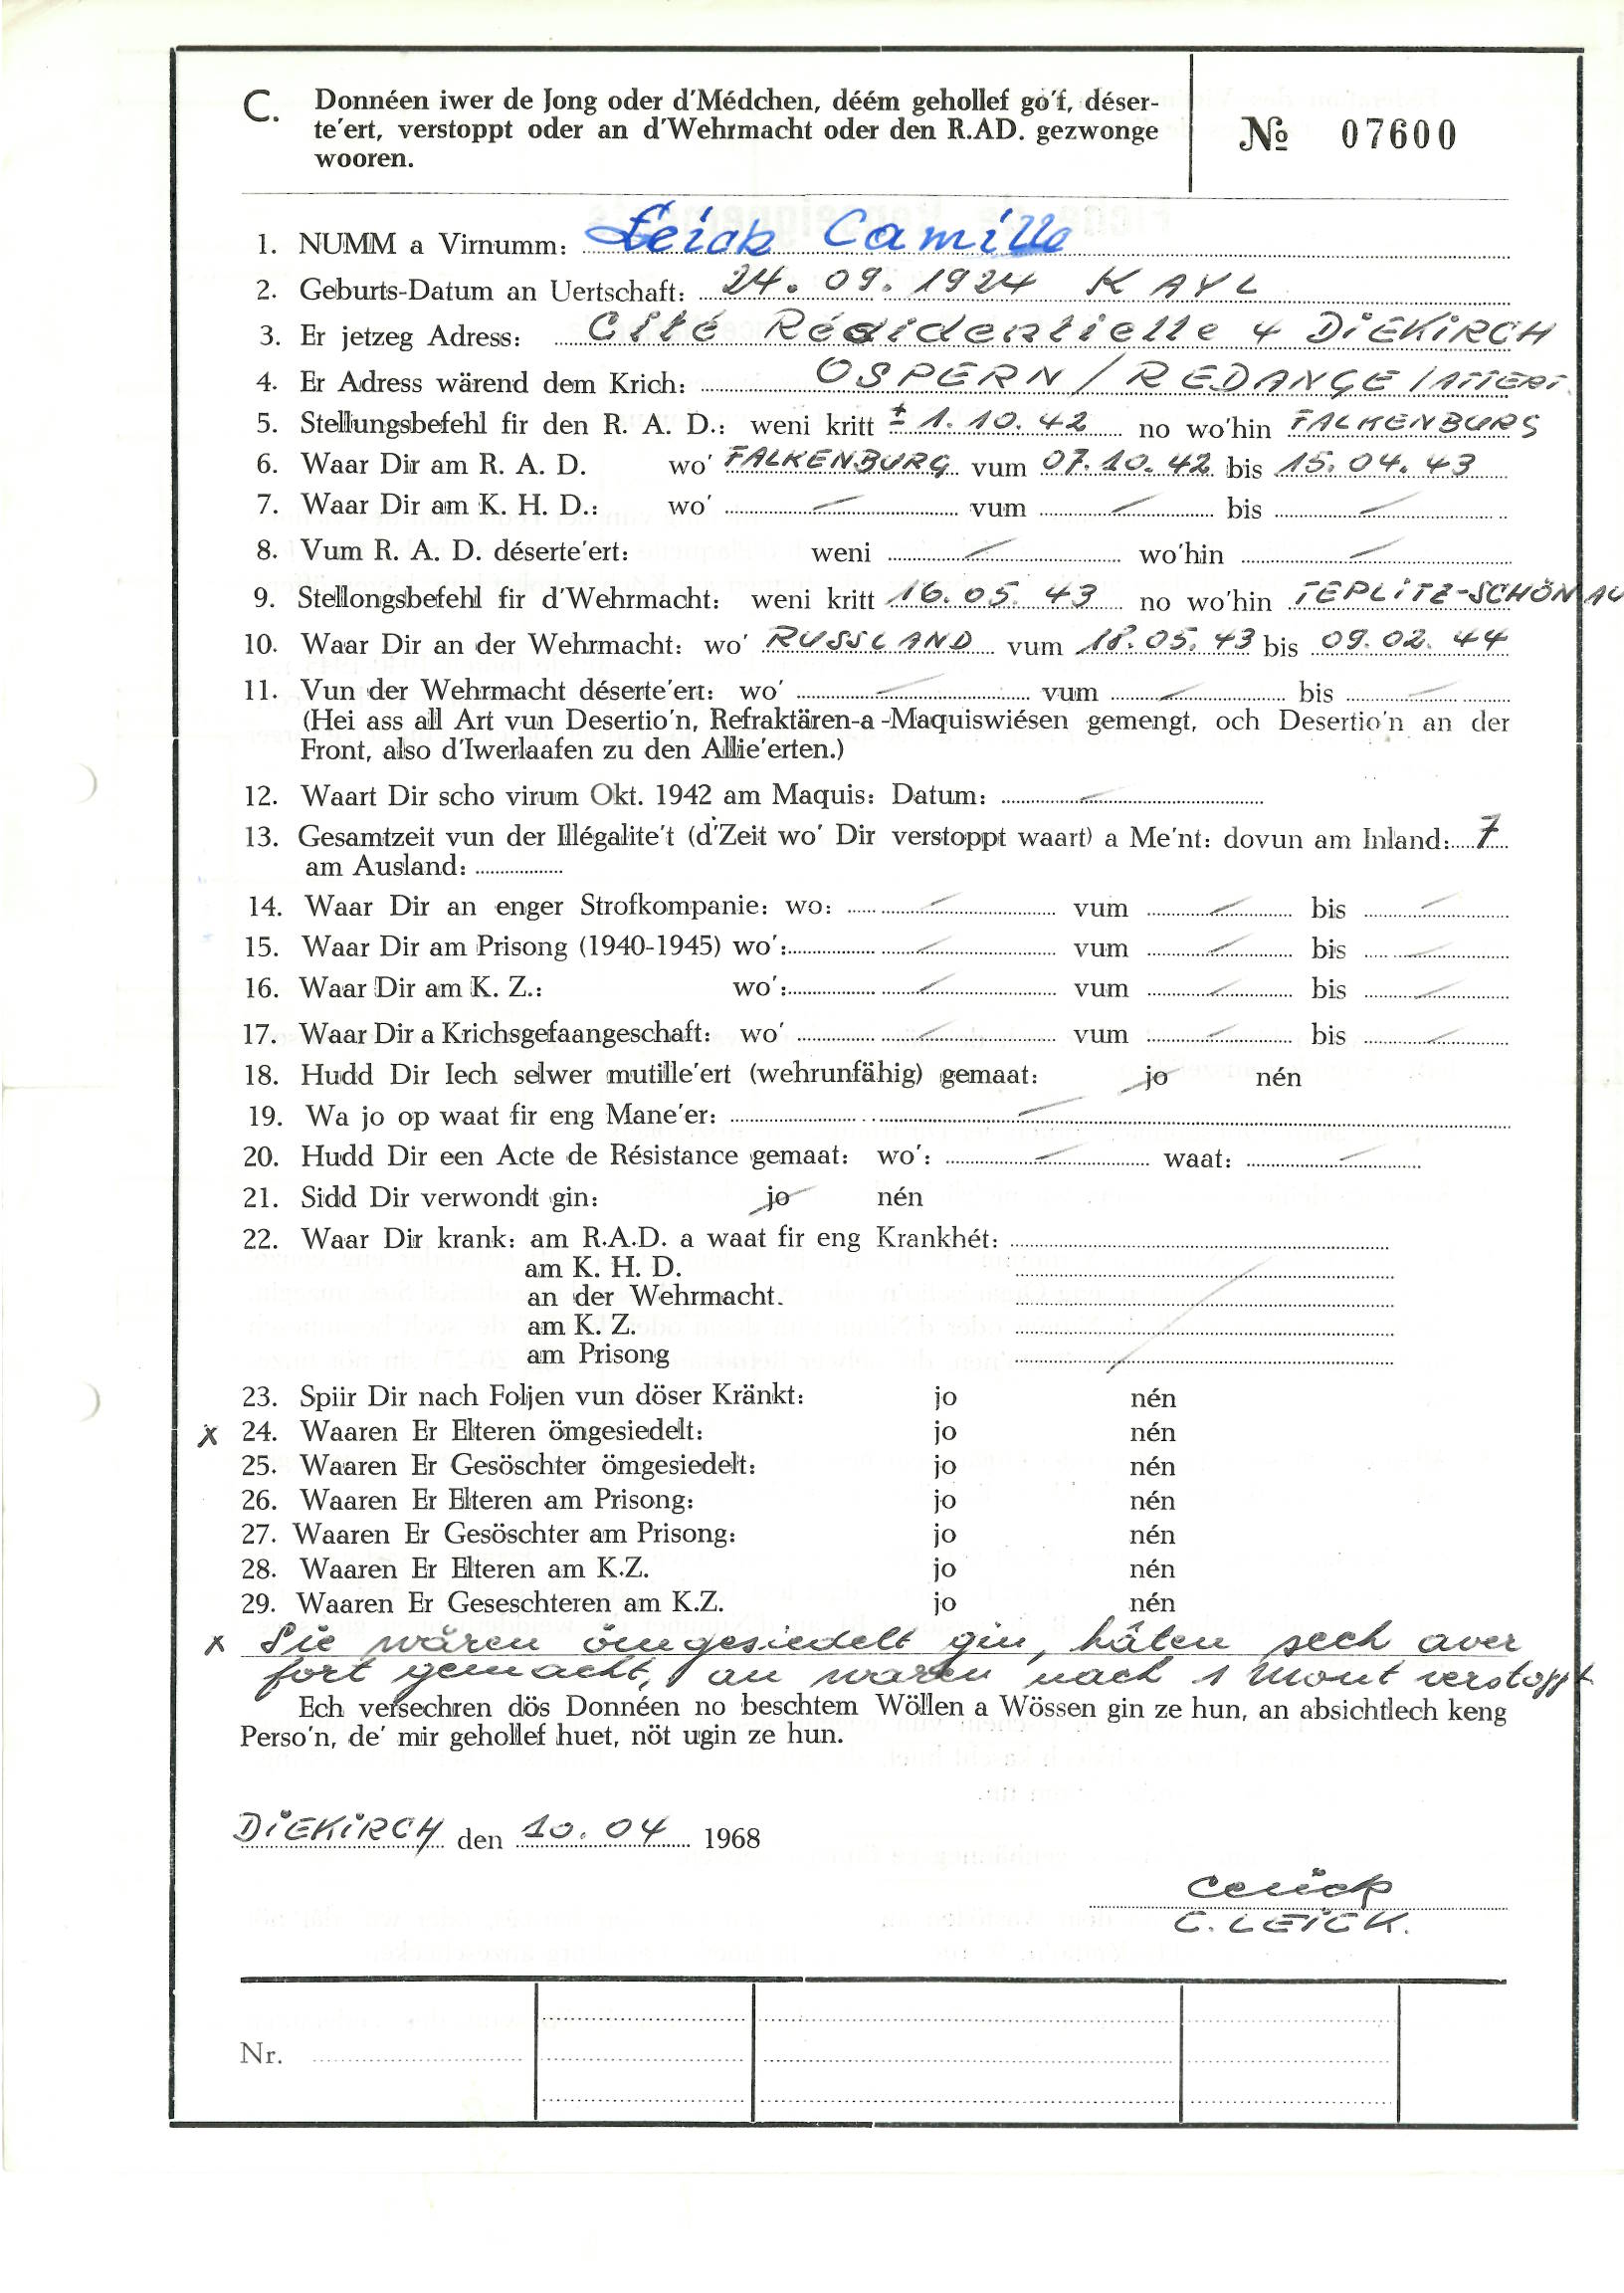 C. Donnéen iwer de Jong oder d'Médchen, déém gehollef go'f, déser-
te'ert, verstoppt oder an d'Wehrmacht oder den R.AD. gezwonge
wooren.
№ 07600
1. NUMM a Virnumm: Leick Camille
2. Geburts-Datum an Uertschaft: 24.09.1924 KAYL
3. Er jetzeg Adress: Cité Résidentielle 4 DIEKIRCH
4. Er Adress wärend dem Krich: OSPERN / REDANGE / ATTERT.
5. Stellungsbefehl fir den R. A. D.: weni kritt ± 1.10.42 no wo'hin FALKENBURG
6. Waar Dir am R. A. D. wo' FALKENBURG vum 07.10.42 bis 15.04.43
7. Waar Dir am K. H. D.: wo' — vum — bis —
8. Vum R. A. D. déserte'ert: weni — wo'hin —
9. Stellongsbefehl fir d'Wehrmacht: weni kritt 16.05.43 no wo'hin TEPLITZ-SCHÖNAU
10. Waar Dir an der Wehrmacht: wo' RUSSLAND vum 18.05.43 bis 09.02.44
11. Vun der Wehrmacht déserte'ert: wo' — vum — bis —
(Hei ass all Art vun Desertio'n, Refraktären-a-Maquiswiésen gemengt, och Desertio'n an der
Front, also d'Iwerlaafen zu den Allie'erten.)
12. Waart Dir scho virum Okt. 1942 am Maquis: Datum: —
13. Gesamtzeit vun der Illégalite't (d'Zeit wo' Dir verstoppt waart) a Me'nt: dovun am Inland: 7
am Ausland:
14. Waar Dir an enger Strofkompanie: wo: — vum — bis —
15. Waar Dir am Prisong (1940-1945) wo': — vum — bis —
16. Waar Dir am K. Z.: wo': — vum — bis —
17. Waar Dir a Krichsgefaangeschaft: wo' — vum — bis —
18. Hudd Dir Iech selwer mutille'ert (wehrunfähig) gemaat: jo nén
19. Wa jo op waat fir eng Mane'er: —
20. Hudd Dir een Acte de Résistance gemaat: wo': — waat: —
21. Sidd Dir verwondt gin: jo nén
22. Waar Dir krank: am R.A.D. a waat fir eng Krankhét:
am K. H. D.
an der Wehrmacht.
am K. Z.
am Prisong
23. Spiir Dir nach Foljen vun döser Kränkt: jo nén
x 24. Waaren Er Elteren ömgesiedelt: jo nén
25. Waaren Er Gesöschter ömgesiedelt: jo nén
26. Waaren Er Elteren am Prisong: jo nén
27. Waaren Er Gesöschter am Prisong: jo nén
28. Waaren Er Elteren am K.Z. jo nén
29. Waaren Er Geseschteren am K.Z. jo nén
x Sie wären ömgesiedelt gin, häten sech aver
fort gemacht, an waren nach 1 Mont verstoppt
Ech versechren dös Donnéen no beschtem Wöllen a Wössen gin ze hun, an absichtlech keng
Perso'n, de' mir gehollef huet, nöt ugin ze hun.
DIEKIRCH den 10.04 1968
CLeick
C. LEICK.
Nr.